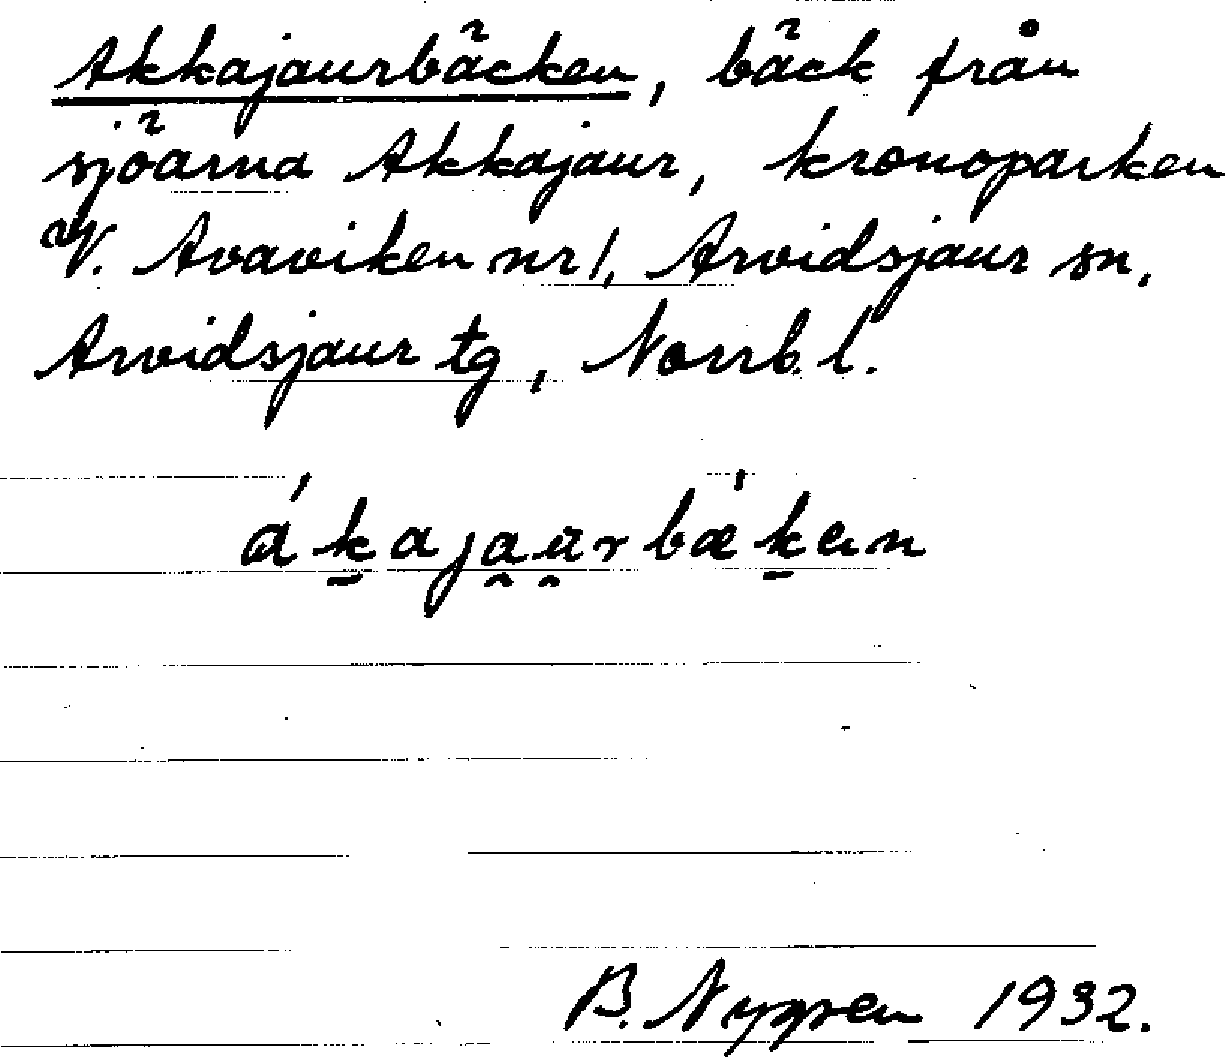 Akkajaurbäcken, bäck från
sjöarna Akkajaur, kronoparken
V. Avaviken nr 1, Arvidsjaur sn,
Arvidsjaur tg, Norrb. l.
B. Nygren 1932.